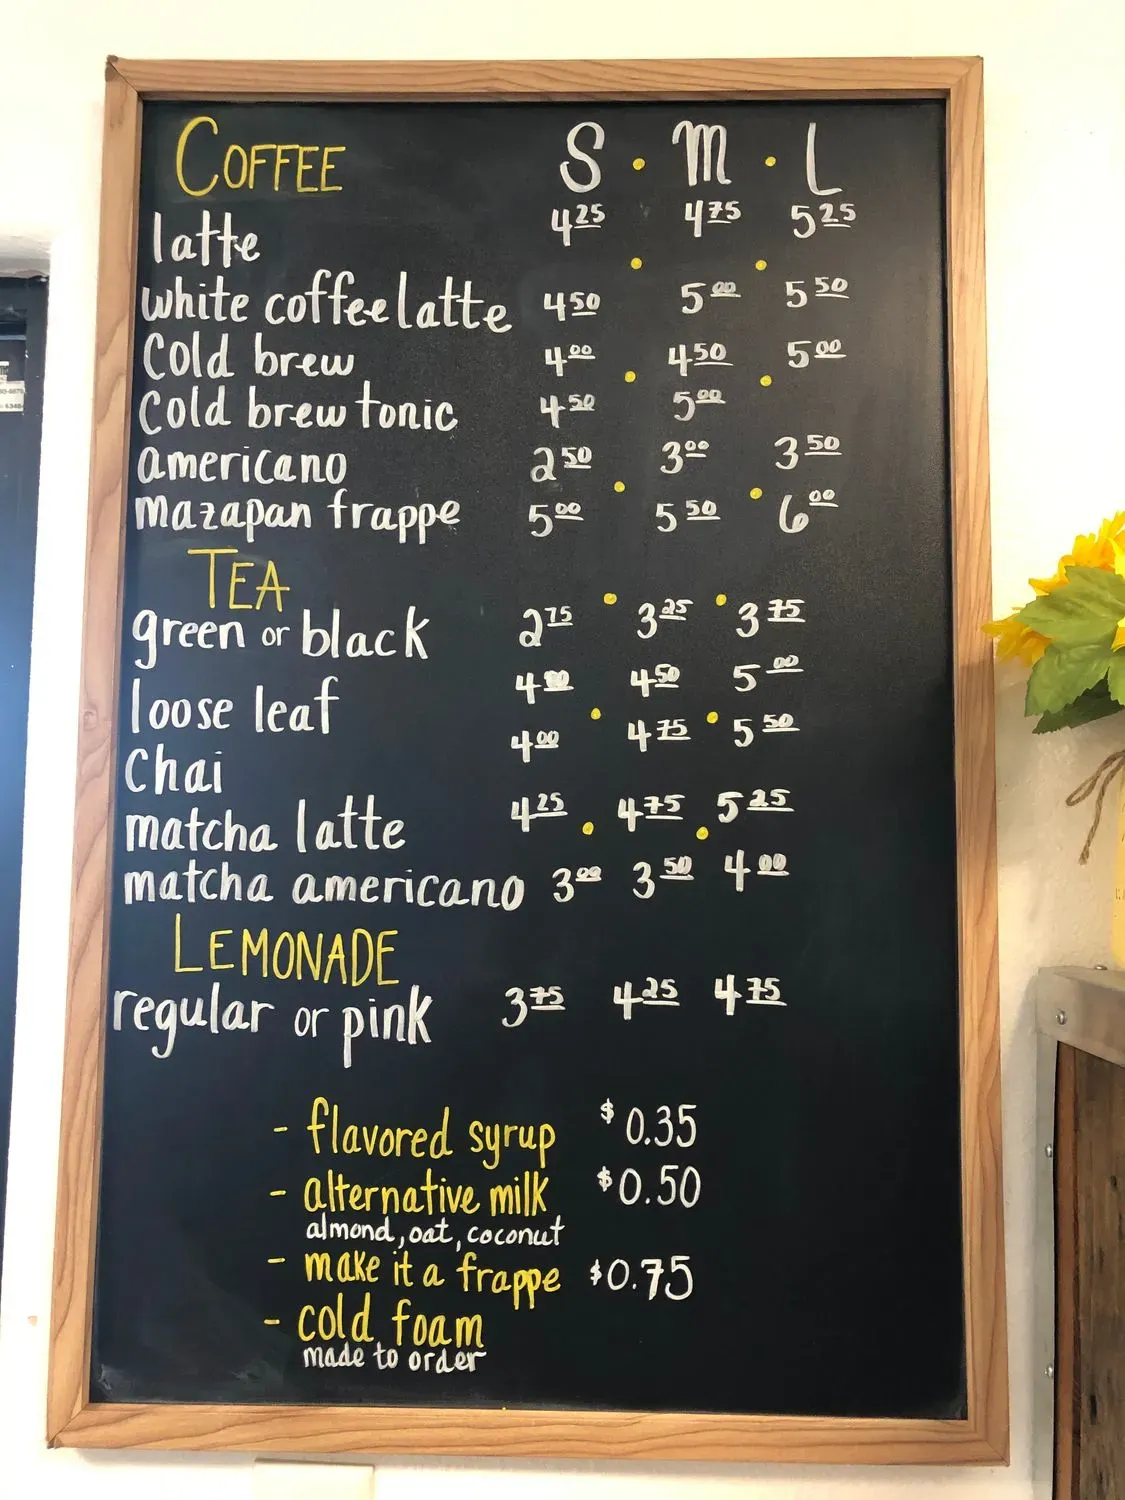 COFFEE S · M · L
latte 4 25 4 75 5 25
white coffee latte 4 50 5 00 5 50
Cold brew 4 00 4 50 5 00
Cold brew tonic 4 50 5 00
americano 2 50 3 00 3 50
mazapan frappe 5 00 5 50 6 00
TEA
green or black 2 75 3 25 3 75
loose leaf 4 00 4 50 5 00
Chai 4 00 4 75 5 50
matcha latte 4 25 4 75 5 25
matcha americano 3 00 3 50 4 00
LEMONADE
regular or pink 3 75 4 25 4 75
- flavored syrup $0.35
- alternative milk $0.50
almond, oat, coconut
- make it a frappe $0.75
- cold foam
made to order